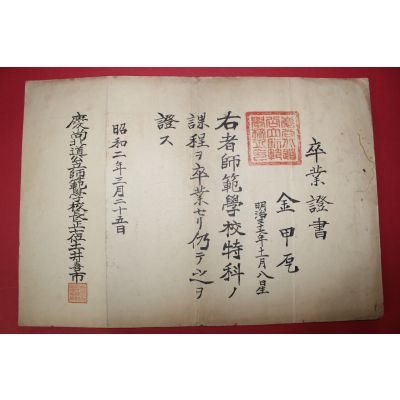 卒業證書
金甲
明治三十年十一月八日星
右者師範學校特科ノ
課程ヲ卒業セリ仍テ之ヲ
證ス
昭和二年三月二十五日
慶尚北道公立師範學校長正七位土井喜市